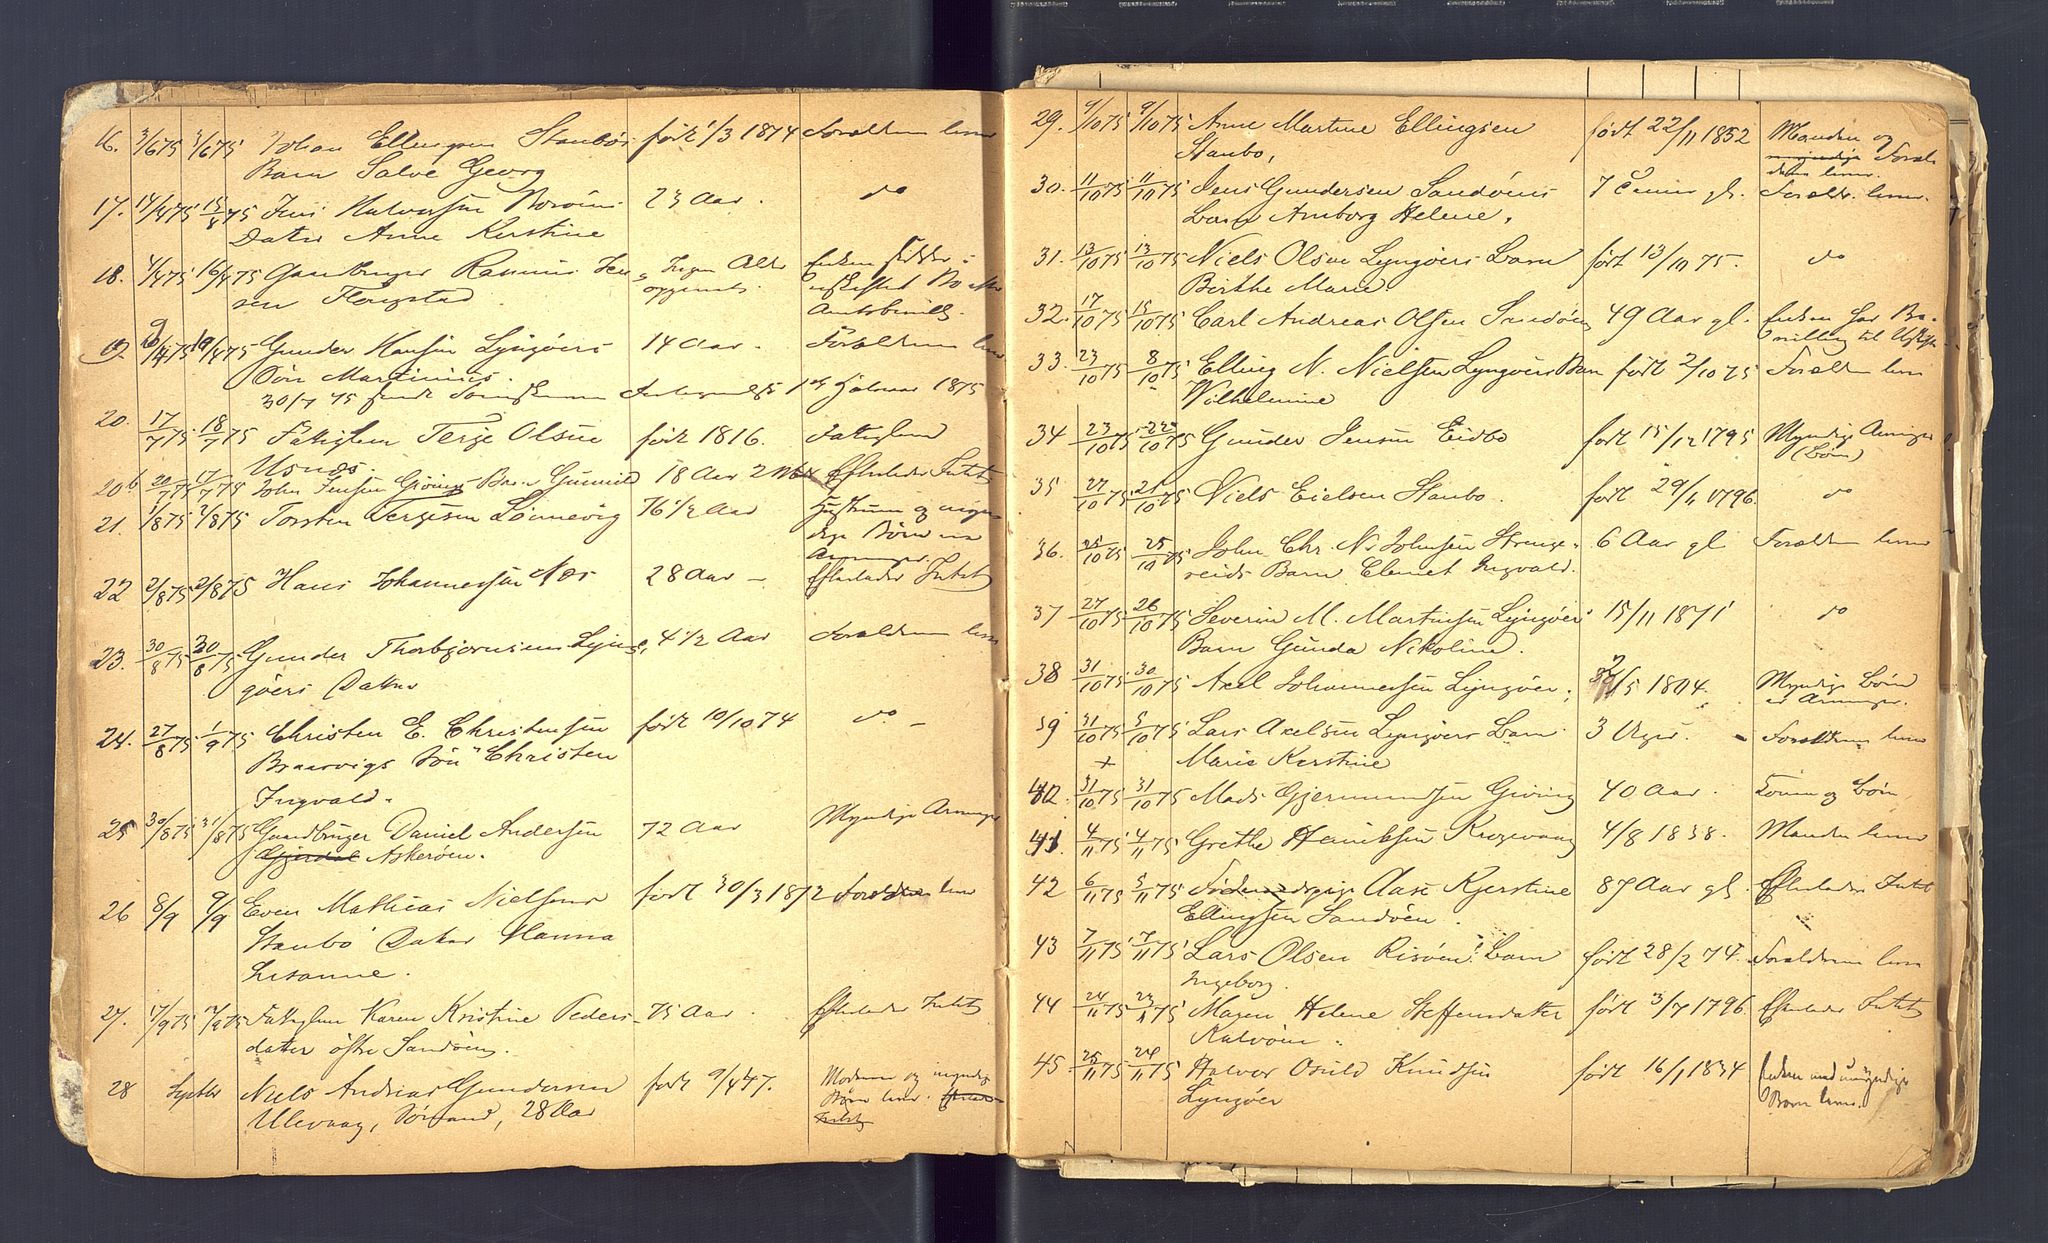 16. 3/6 75 3/6 75 Johan Ellingsen Staubø født 1/3 1874 Forældrene lever
Barn Salve Georg
17. 14/4 75 15/4 75 Jens Halvorsen 23 Aar. do
Datter Anne Kerstine
18. 4/75 16/4 75 Gaardbruger Rasmus Jen- Ingen Alder Enken sidder i
sen Flougstad opgivet. uskiftet Bo efter
Amtsbevill.
19. 75 19/4 75 Gunder Hansen Lyngøers 14 Aar. Forældrene lever
Søn Martinius.
30/7 75 1875
20. 17/7 75 18/7 75 Fattiglem Terje Olsen født 1816. Fattiglem
Usnæs.
20b 20/7 75 17/7 75 John Jensen Giving Barn Gunnild 18 Aar 2 Mdr Efterlader Intet
21. 1/8 75 2/8 75 Torsten Terjesen Lønnevig 76 1/2 Aar Hustrum og myn-
dige Børn
Arvinger
22 2/8 75 2/8 75 Hans Johannessen Næs 28 Aar - Efterlader Intet
23. 30/8 75 30/8 75 Gunder Thorbjørnsen Lyn- 4 1/2 Aar Forældrene lever
gøers Datter
24. 27/8 75 1/9 75 Christen E. Christensen født 10/10 74 do -
Braarvigs Søn Christen
Ingvald.
25 30/8 75 31/8 75 Gaardbruger Daniel Andersen 72 Aar Myndige Arvinger
Gjerdal Askerøen.
26 8/9 9/9 Even Mathias Nielsens født 30/3 1872 Forældrene lever
Staubø Datter Hanna
Susanne.
27. 17/9 75 75 Fattiglem Karen Kristine Peders- 75 Aar. Efterlader Intet
datter Sandøen.
28 Septbr Niels Andreas Gundersen født 9/4 47. Moderen og myndige
Ulevaag, 28 Aar Børn lever. Efterlader
Intet
29. 9/10 75 9/10 75 Anne Martine Ellingsen født 22/11 1852 Manden og
Staubo, myndige Foræl-
drene lever.
30. 11/10 75 11/10 75 Jens Gundersen Sandøens 7 gl. Forældr. lever.
Barn Amborg Helene.
31. 13/10 75 13/10 75 Niels Olsen Lyngøers Barn født 13/10 75. do
Berthe Marie.
32. 17/10 75 15/10 75 Carl Andreas Olsen Sandøen 49 Aar gl. Enken har Be-
villing til Uskifte
33. 23/10 75 8/10 75 Elling N. Nielsen Lyngøers Barn født 2/10 75 Forældrene lever
Wilhelmine
34 23/10 75 22/10 75 Gunder Jensen Eidbo født 15/12 1795 Myndige Arvinger
(Børn)
35 27/10 75 75 Niels Eielsen Staubo. født 29/1 1796. do
36. 25/10 75 25/10 75 John Chr. N. Johnsen Strenge- 6 Aar gl Forældrene lever
reids Barn Clemet Ingvald.
37 27/10 75 26/10 75 Severin M. Martinsen Lyngøer 15/11 1871 do
Barn Gunda Nikoline.
38 31/10 75 30/10 75 Axel Johannessen Lyngøer. /5 1804. Myndige Børn
er Arvinger.
39 31/10 75 5/10 75 Lars Axelsen Lyngøers Barn 3 Uger. - Forældrene lever
+ Marie Kerstine
40. 31/10 75 31/10 75 Mads Gjermundsen Giving 40 Aar. og Børn
41 4/11 75 4/11 75 Grethe Henriksen Krogevaag 4/8 1838. Manden lever
42 6/11 75 5/11 75 Aase Kjerstine 87 Aar gl. Efterlader Intet
Ellingsen Sandøen.
43 7/11 75 7/11 75 Lars Olsen Risøens Barn født 28/2 74. Forældrene lever
Ingeborg.
44 24/11 75 23/11 75 Maren Helene Steffensdatter født 3/7 1796. Efterlader Intet
Kalvøen.
45 25/11 75 24/11 75 Halvor Osuld Knudsen født 16/1 1834 Enken med umyndige
Lyngøer Børn lever.